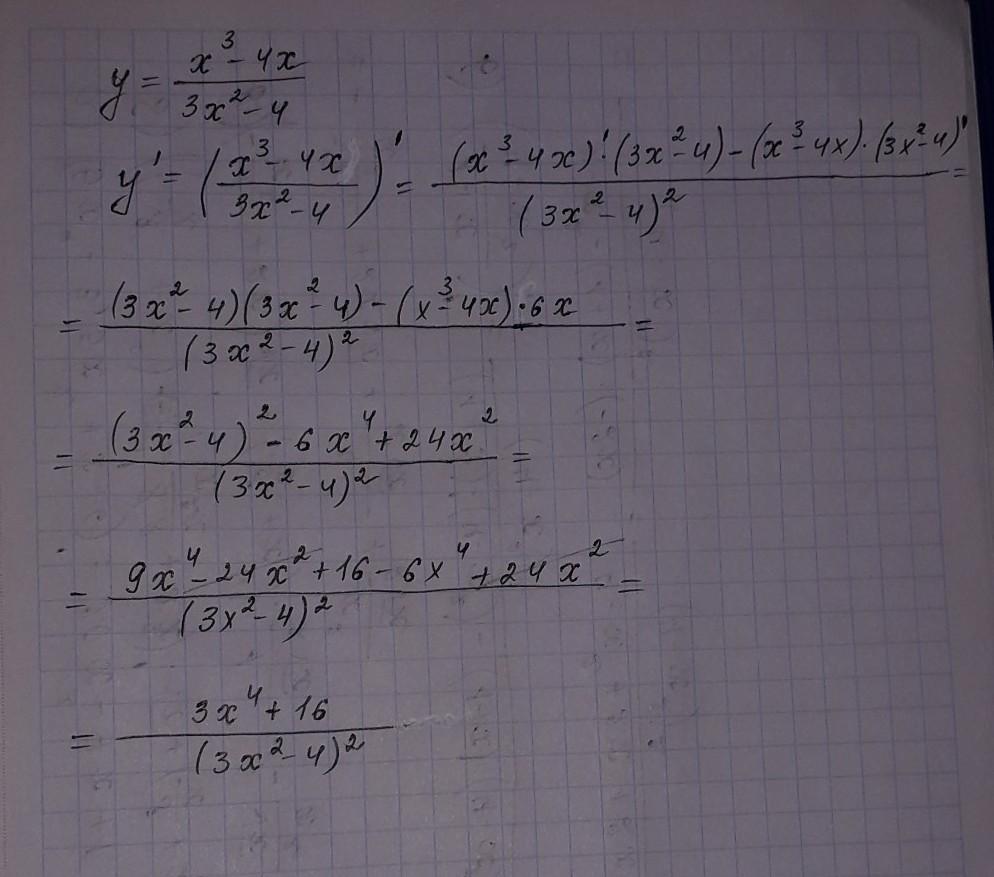 y = (x³ - 4x)/(3x² - 4)
y' = ((x³ - 4x)/(3x² - 4))' = ((x³ - 4x)' · (3x² - 4) - (x³ - 4x) · (3x² - 4)')/(3x² - 4)² =
= ((3x² - 4)(3x² - 4) - (x³ - 4x) · 6x)/(3x² - 4)² =
= ((3x² - 4)² - 6x⁴ + 24x²)/(3x² - 4)² =
= (9x⁴ - 24x² + 16 - 6x⁴ + 24x²)/(3x² - 4)² =
= (3x⁴ + 16)/(3x² - 4)²